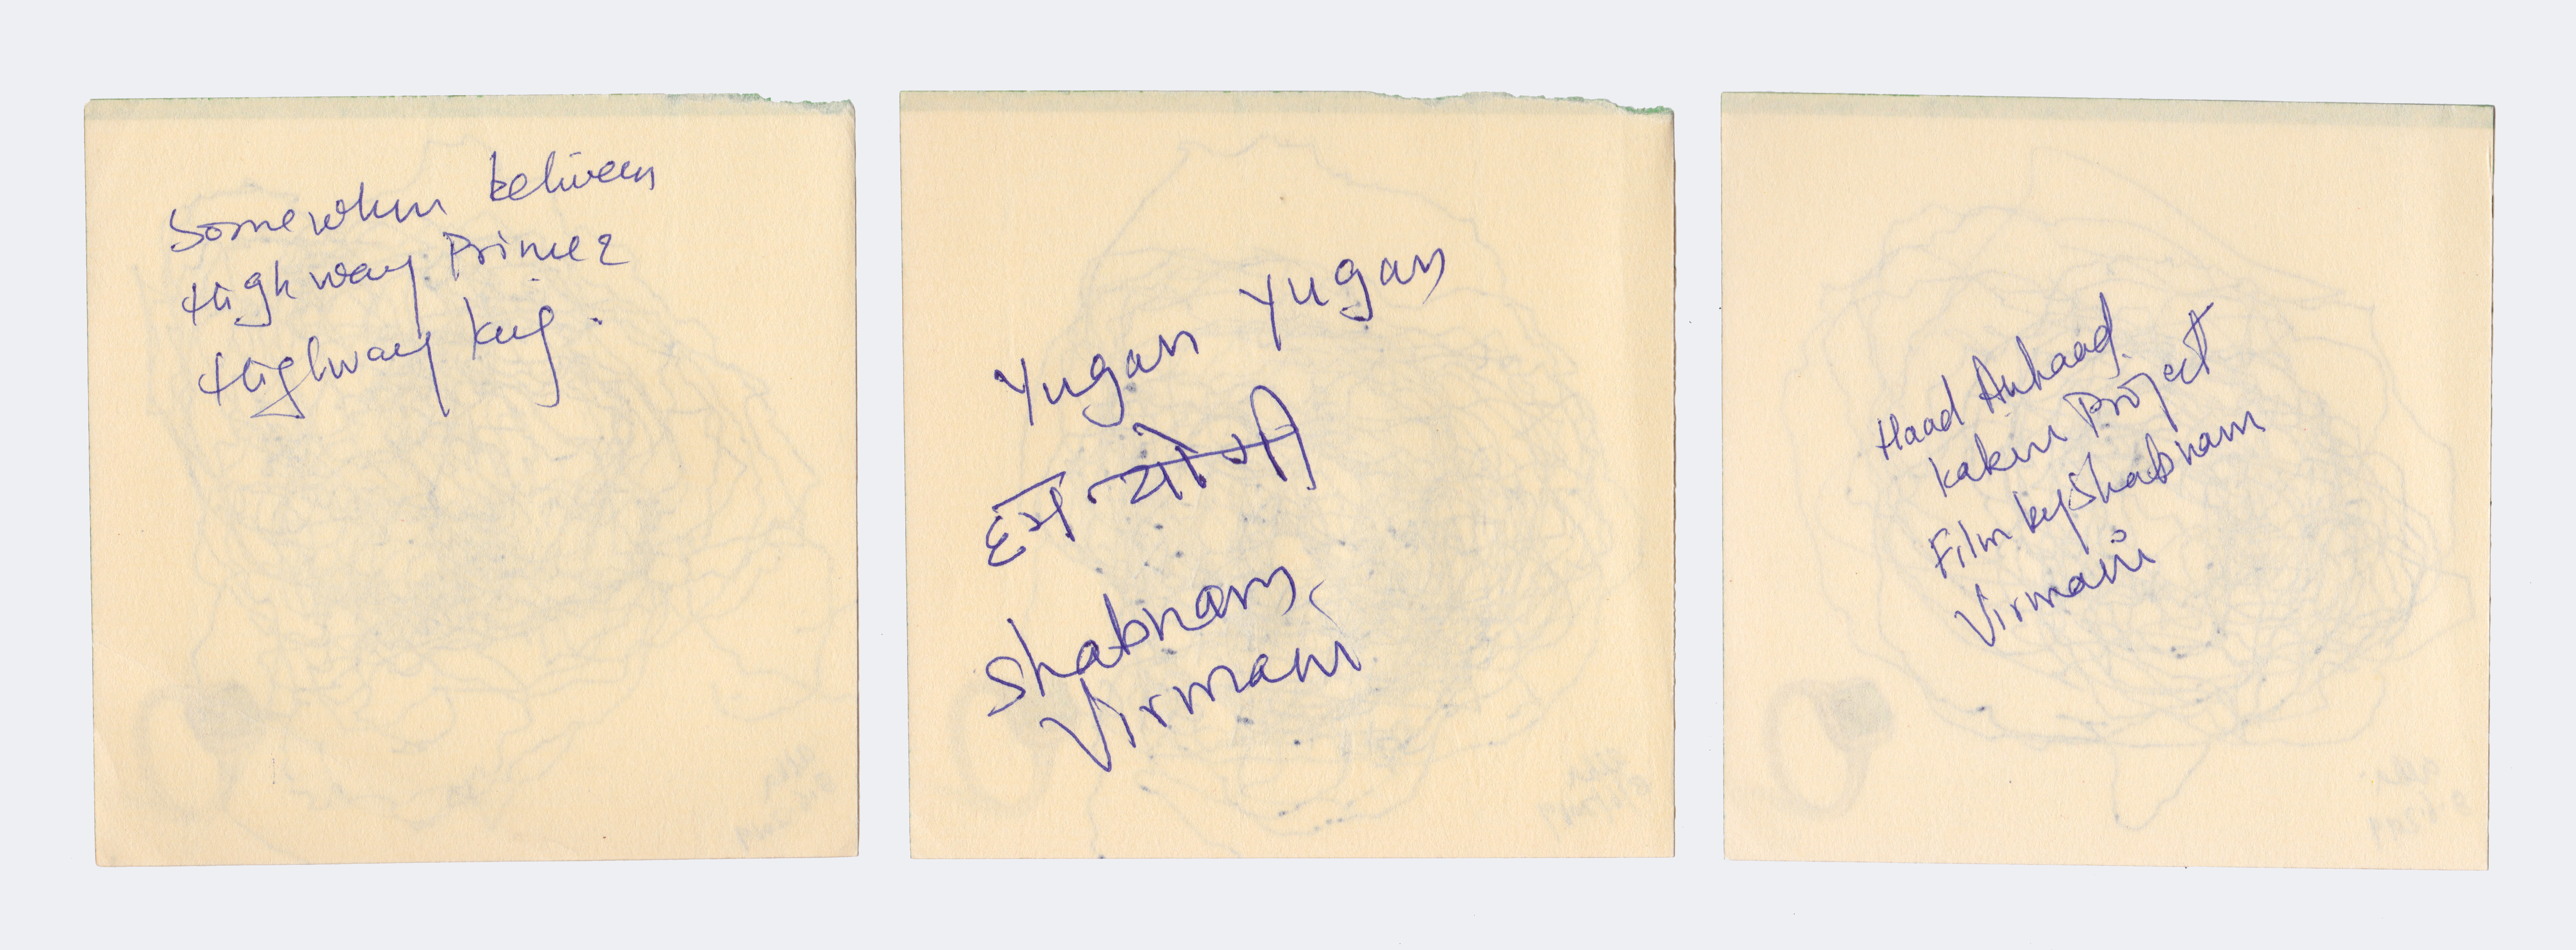 Somewhere between
Highway Prince &
Highway King.
Yugan Yugan
हम योगी
Shabnam
Virmani
Haad Anhaad
Kabir Project
Film by Shabnam
Virmani